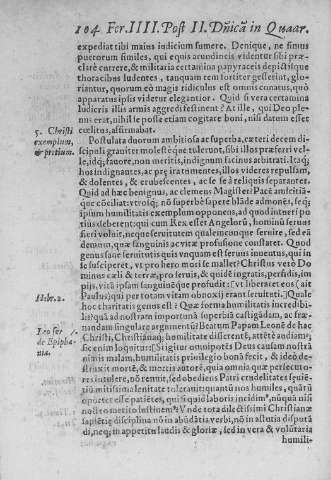 104 Fer. IIII. Post II. Dñicā in Quaar.
expediat tibi maius iudicium sumere. Denique, ne simus
puerorum similes, qui equis arundineis videntur sibi præ-
clarè currere, & militaria certamina papyraceis depictisque
thoracibus ludentes, tanquam rem fortiter gesserint, glo-
riantur, quorum eò magis ridiculus est omnis conatus, quò
apparatus ipsis videtur elegantior. Quid si vera certamina
ludicris illis armis aggredi essent? At ille, qui Deo ple-
nus erat, nihil se posse etiam cogitare boni, nisi datum esset
cœlitus, affirmabat.
5. Christi
exemplum,
& pretium.
Postulata duorum ambitiosa ac superba, cæteri decem di-
scipuli grauiter molestéque tulerunt, sibi illos præferri vel-
le, idq; fauore, non meritis, indignum facinus arbitrati. Itaq;
hos indignantes, ac præ ira tumentes, illos videres repulsam,
& dolentes, & erubescentes, ac se se à reliquis separantes.
Quid ad hæc benignus, ac clemens Magister? Pacē amicitiā-
que cōciliat: vtroiq; nō superbè sed perè blādè admonēs, seq;
ipsum humilitatis exemplum opponens, ad quod intueri po-
tius deberent: qui cum Rex esset Angelorū, hominū seruus
fieri voluit, neque seruitutem qualemcunque seruire, sed eā
demum, quæ sanguinis ac vitæ profusione constaret. Quod
genus sanè seruitutis quis vnquam est seruus inuentus, qui in
se susciperet, vt pro hero mori se mallet? Christus verò Do
minus cæli & terræ, pro seruis, & quidē ingratis, perfidis, im
pijs, vitā ipsam sanguinéque profudit:
Hebr. 2.
(vt liberaret eos (ait
Paulus) qui per totam vitam obnoxij erant seruituti.) Quale
hoc charitatis genus est? Quæ forma humilitatis incredibi-
lis? quā ad nostram importunā superbiā castigadam, ac fræ-
nandam singulare argumentū?
Leo ser.
de Epipha
nia.
Beatum Papam Leonē de hac
Christi, Christianaq; humilitate disserentē, attētè audiam';
sic enim loquitur: (Sigitur omnipotēs Deus causam nostrā
nimis malam, humilitatis priuilegio bonā fecit, & ideò de-
struxit mortē, & mortis autorē, quia omnia quæ persecuto-
res intulere, nō renuit, sed obediens Patri crudelitates sęuiē-
tiū mitissima lenitate tolerauit: quantū nos humiles, quātū
oportet esse patiētes, qui si quid laboris incidim', nūquā nisi
nostro merito sustinem'? Vnde tota dilectissimi Christianæ
sapiētiæ disciplina nō in abūdātia verbi, nō in astutia disputā
di, neq; in appetitu laudis & gloriæ, sed in vera & voluntaria
humili-